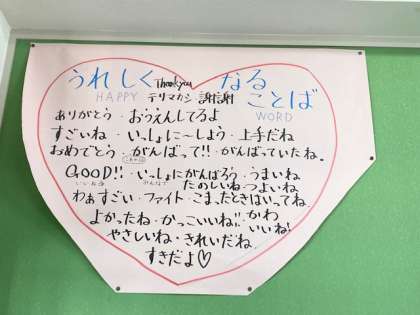 うれしく Thank you なる
HAPPY テリマカシ 謝謝 ことば
WORD
ありがとう・おうえんしてるよ
すごいね・いっしょに〜しよう・上手だね
おめでとう・がんばって!!・がんばっていたね。
GOOD!!・いっしょにがんばろう・うまいね
いいね みんなで たのしいね・つよいね
わぁすごい・ファイト・こまったときはいってね
よかったね・かっこいいね!!・かわいいね!
やさしいね・きれいだね
すきだよ♡